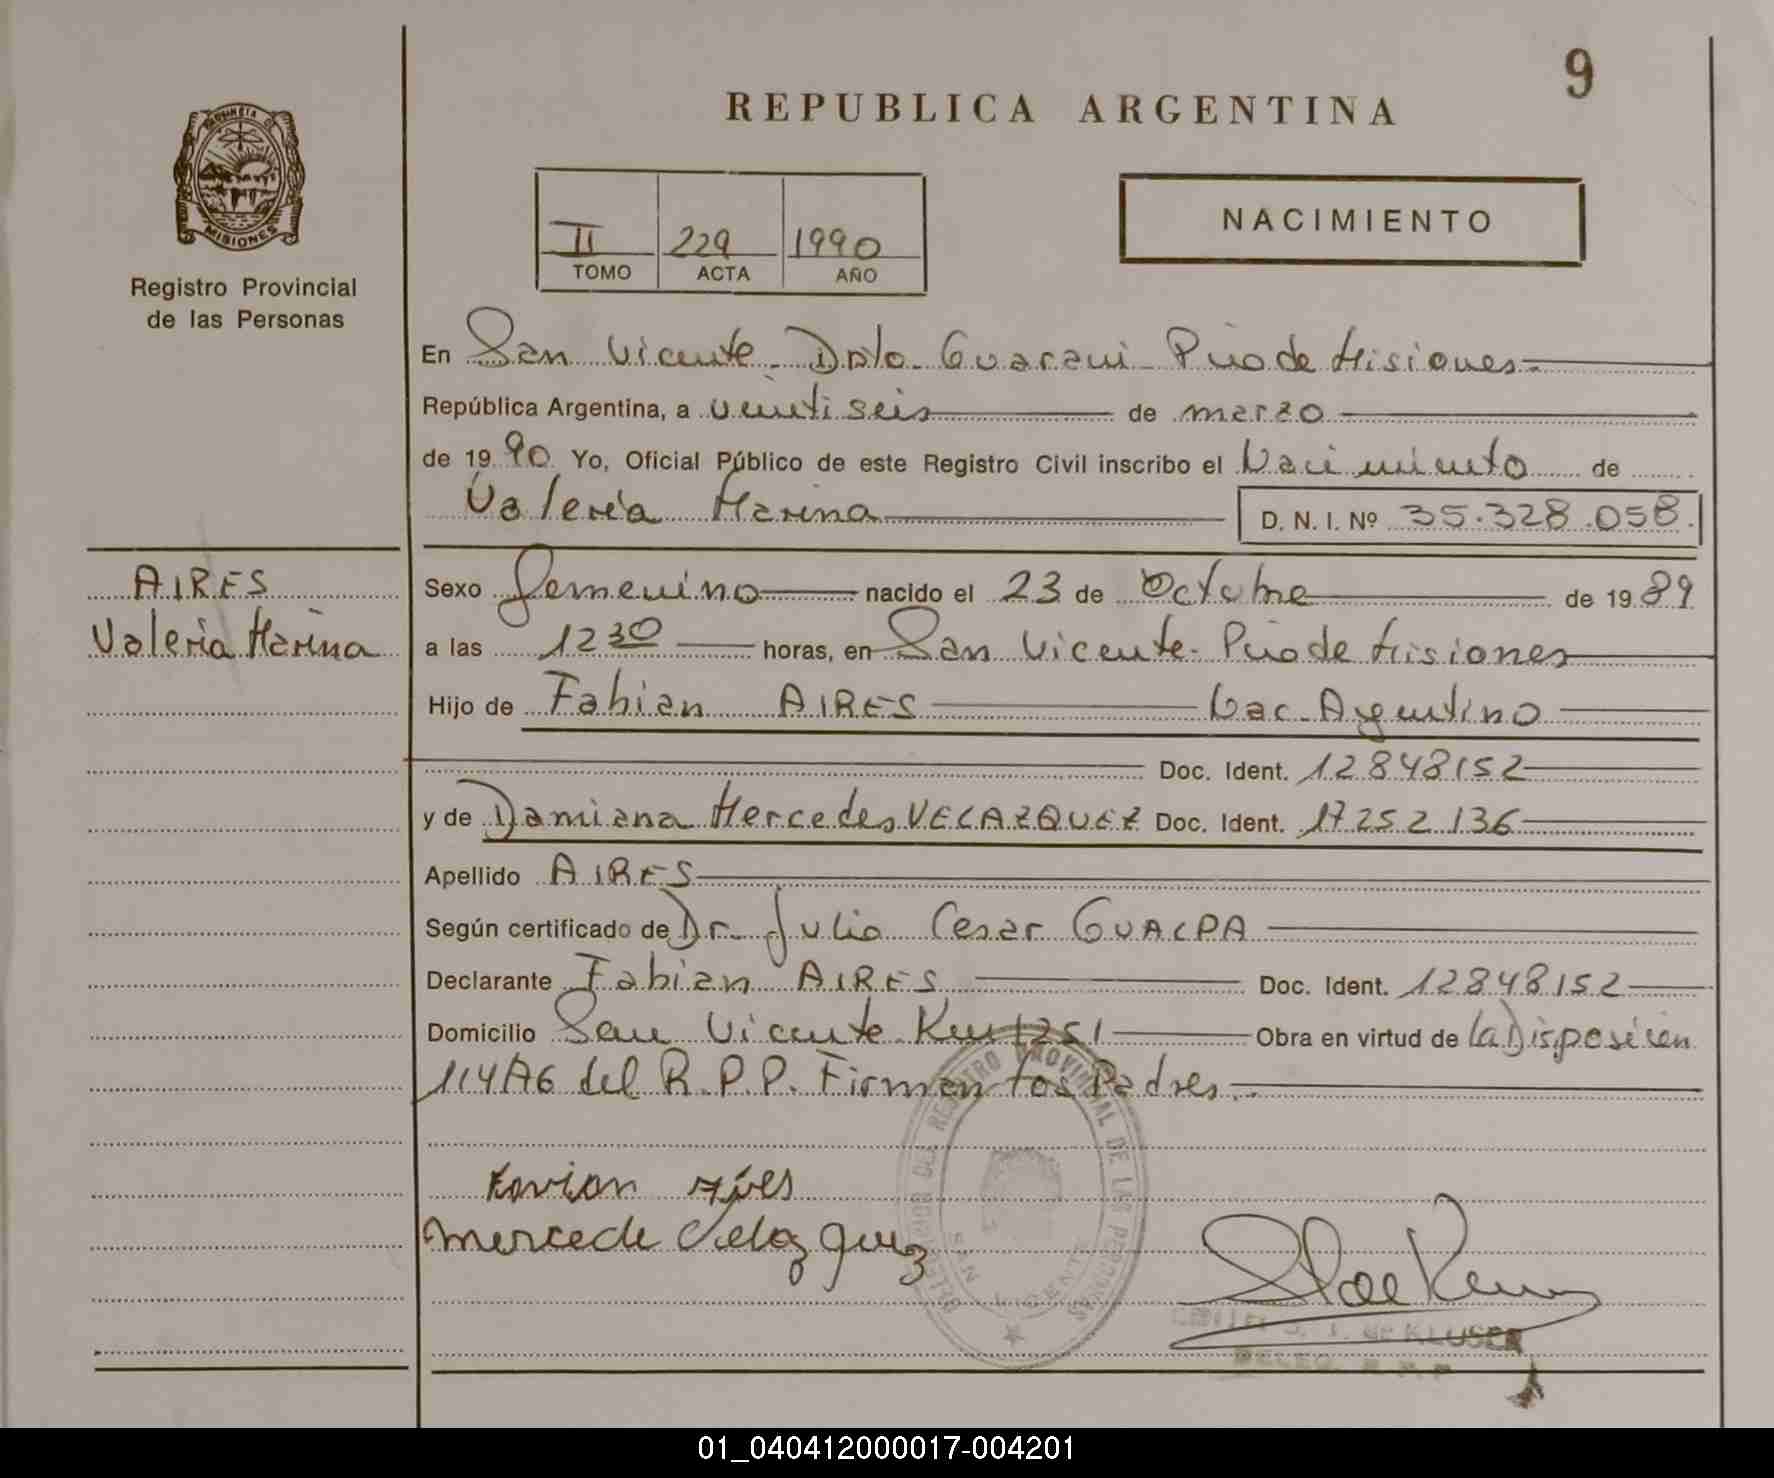 9
REPUBLICA ARGENTINA
PROVINCIA DE
MISIONES
Registro Provincial
de las Personas
II 229 1990
TOMO ACTA AÑO
NACIMIENTO
En San Vicente - Dpto. Guarani - Pcia de Misiones -
República Argentina, a veintiseis de marzo
de 1990 Yo, Oficial Público de este Registro Civil inscribo el Nacimiento de
Valeria Marina D. N. I. Nº 35.328.058.
AIRES
Valeria Marina
Sexo femenino nacido el 23 de Octubre de 1989
a las 12 30 horas, en San Vicente - Pcia de Misiones
Hijo de Fabian AIRES Nac. Argentino
Doc. Ident. 12848152
y de Damiana Mercedes VELAZQUEZ Doc. Ident. 17252136
Apellido AIRES
Según certificado de Dr. Julio Cesar GUALPA
Declarante Fabian AIRES Doc. Ident. 12848152
Domicilio San Vicente Km 1251 Obra en virtud de la Disposición
114/76 del R.P.P. Firman los Padres.
DELEGACION DEL REGISTRO PROVINCIAL DE LAS PERSONAS
SAN VICENTE
Favian Aires
mercede Velazquez
DE KLUSER
DELEG. R.P.P
01_040412000017-004201